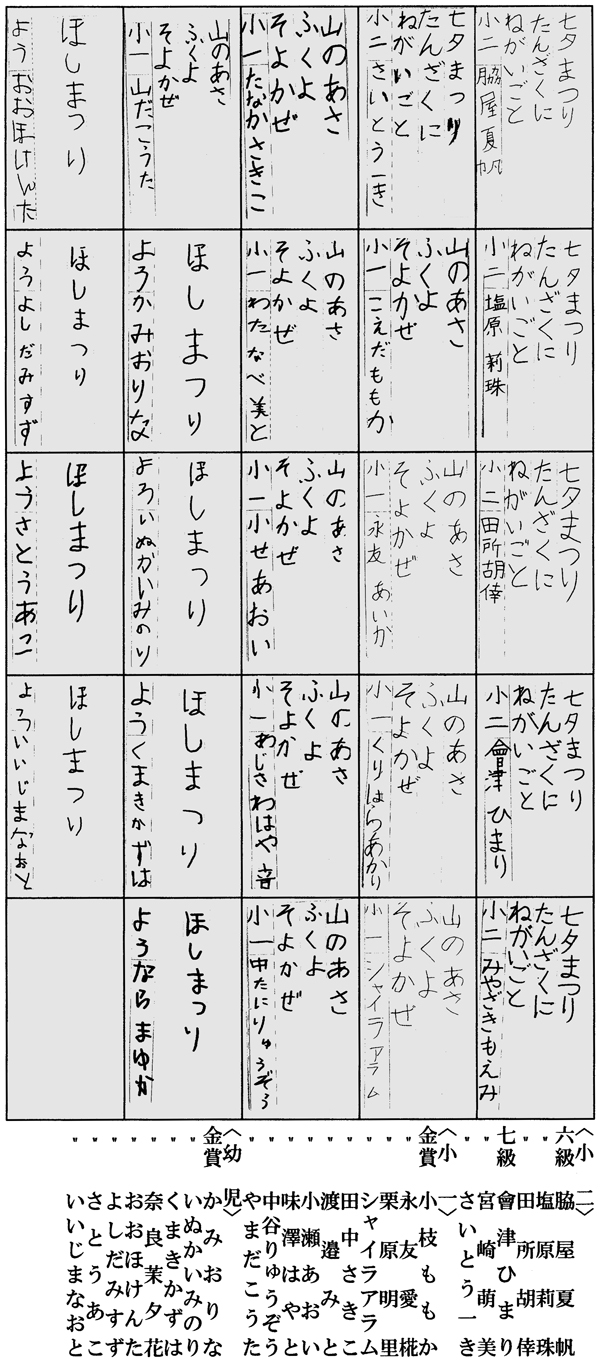 七夕まつり
たんざくに
ねがいごと
小二 脇屋夏帆
七夕まつり
たんざくに
ねがいごと
小二 塩原莉珠
七夕まつり
たんざくに
ねがいごと
小二 田所胡倖
七夕まつり
たんざくに
ねがいごと
小二 會津ひまり
七夕まつり
たんざくに
ねがいごと
小二 みやざきもえみ
七夕まつり
たんざくに
ねがいごと
小二 さいとう一き
山のあさ
ふくよ
そよかぜ
小一 こえだももか
山のあさ
ふくよ
そよかぜ
小一 永友あいか
山のあさ
ふくよ
そよかぜ
小一 くりはらあかり
山のあさ
ふくよ
そよかぜ
小一 シャイラアラム
山のあさ
ふくよ
そよかぜ
小一 たなかさきこ
山のあさ
ふくよ
そよかぜ
小一 わたなべ美と
山のあさ
ふくよ
そよかぜ
小一 小せあおい
山のあさ
ふくよ
そよかぜ
小一 あじさわはや音
山のあさ
ふくよ
そよかぜ
小一 中たにりゅうぞう
山のあさ
ふくよ
そよかぜ
小一 山だこうた
ほしまつり
ようかみおりな
ほしまつり
よういぬかいみのり
ほしまつり
ようくまきかずは
ほしまつり
ようならまゆか
ほしまつり
ようおおほけんた
ほしまつり
ようよしだみすず
ほしまつり
ようさとうあこ
ほしまつり
よういいじまなおと
〈小二〉
六級 脇屋夏帆
〃 塩原莉珠
〃 田所胡倖
七級 會津ひまり
〃 宮崎萌美
〃 さいとう一き
〈小一〉
金賞 小枝ももか
〃 永友愛椛
〃 栗原明里
〃 シャイラアラム
〃 田中さきこ
〃 渡邉みと
〃 小瀬あおい
〃 味澤はやと
〃 中谷りゅうぞう
〃 やまだこうた
〈幼児〉
金賞 かみおりな
〃 いぬかいみのり
〃 くまきかずは
〃 奈良茉夕花
〃 おおほけんた
〃 よしだみすず
〃 さとうあこ
〃 いいじまなおと